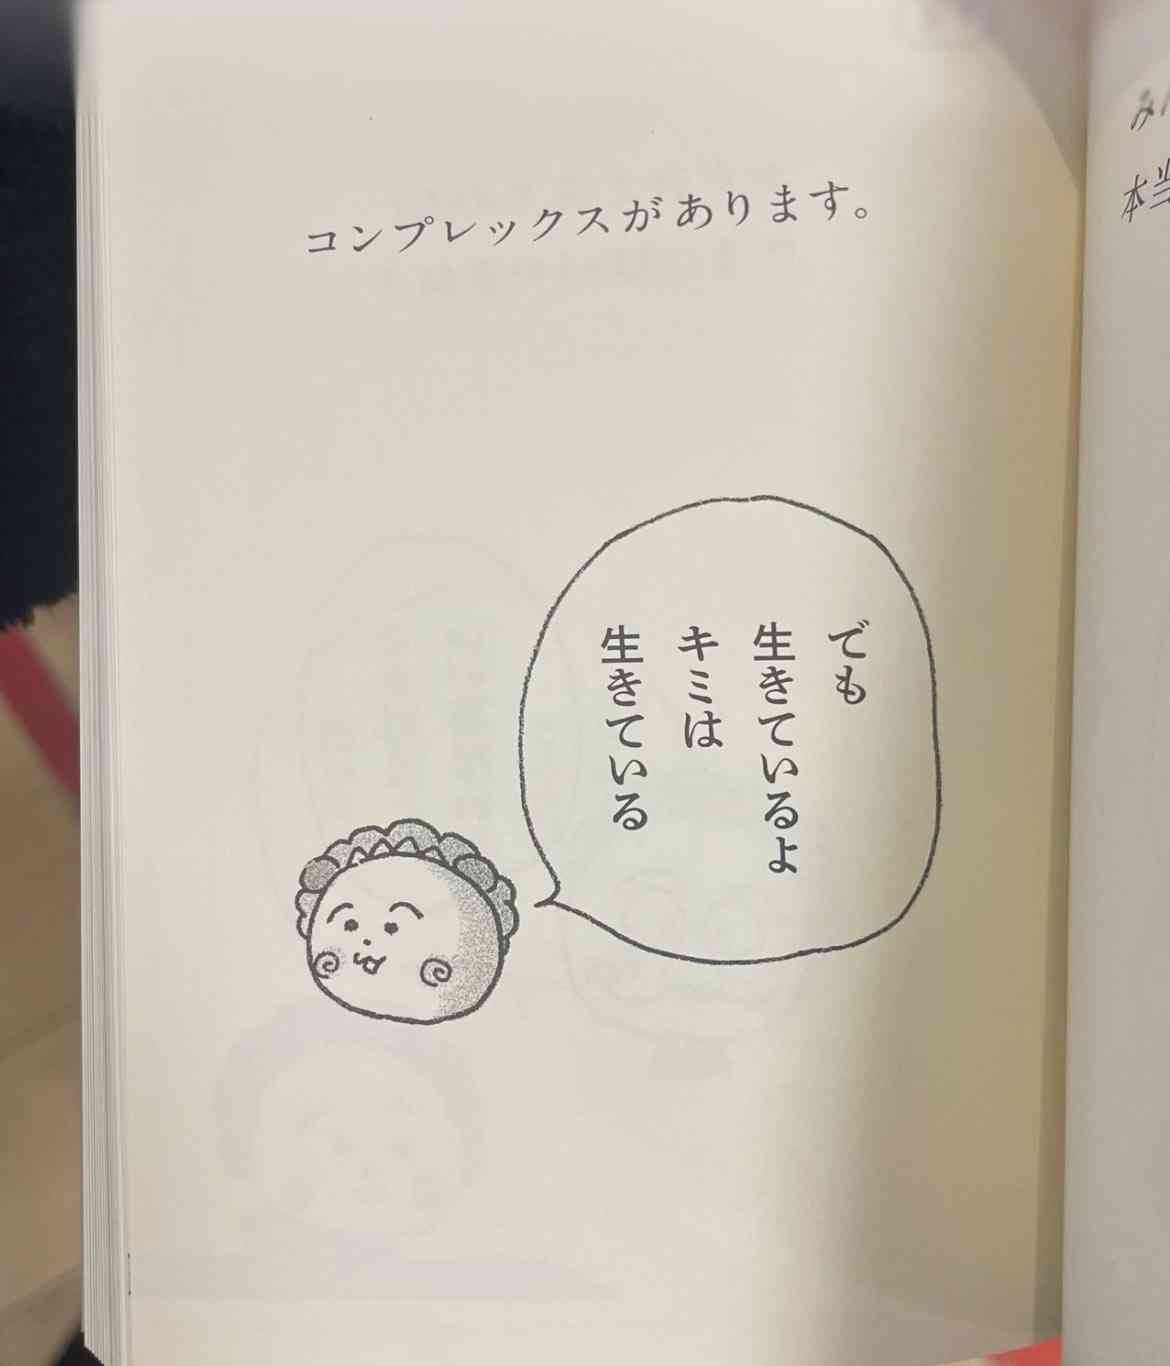 コンプレックスがあります。
でも
生きているよ
キミは
生きている
本当